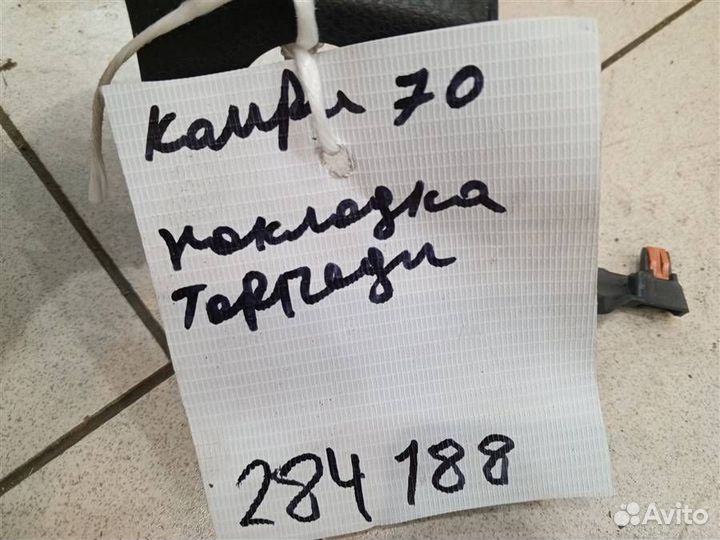 Камри 70
накладка
Торпеды
284 188
Avito